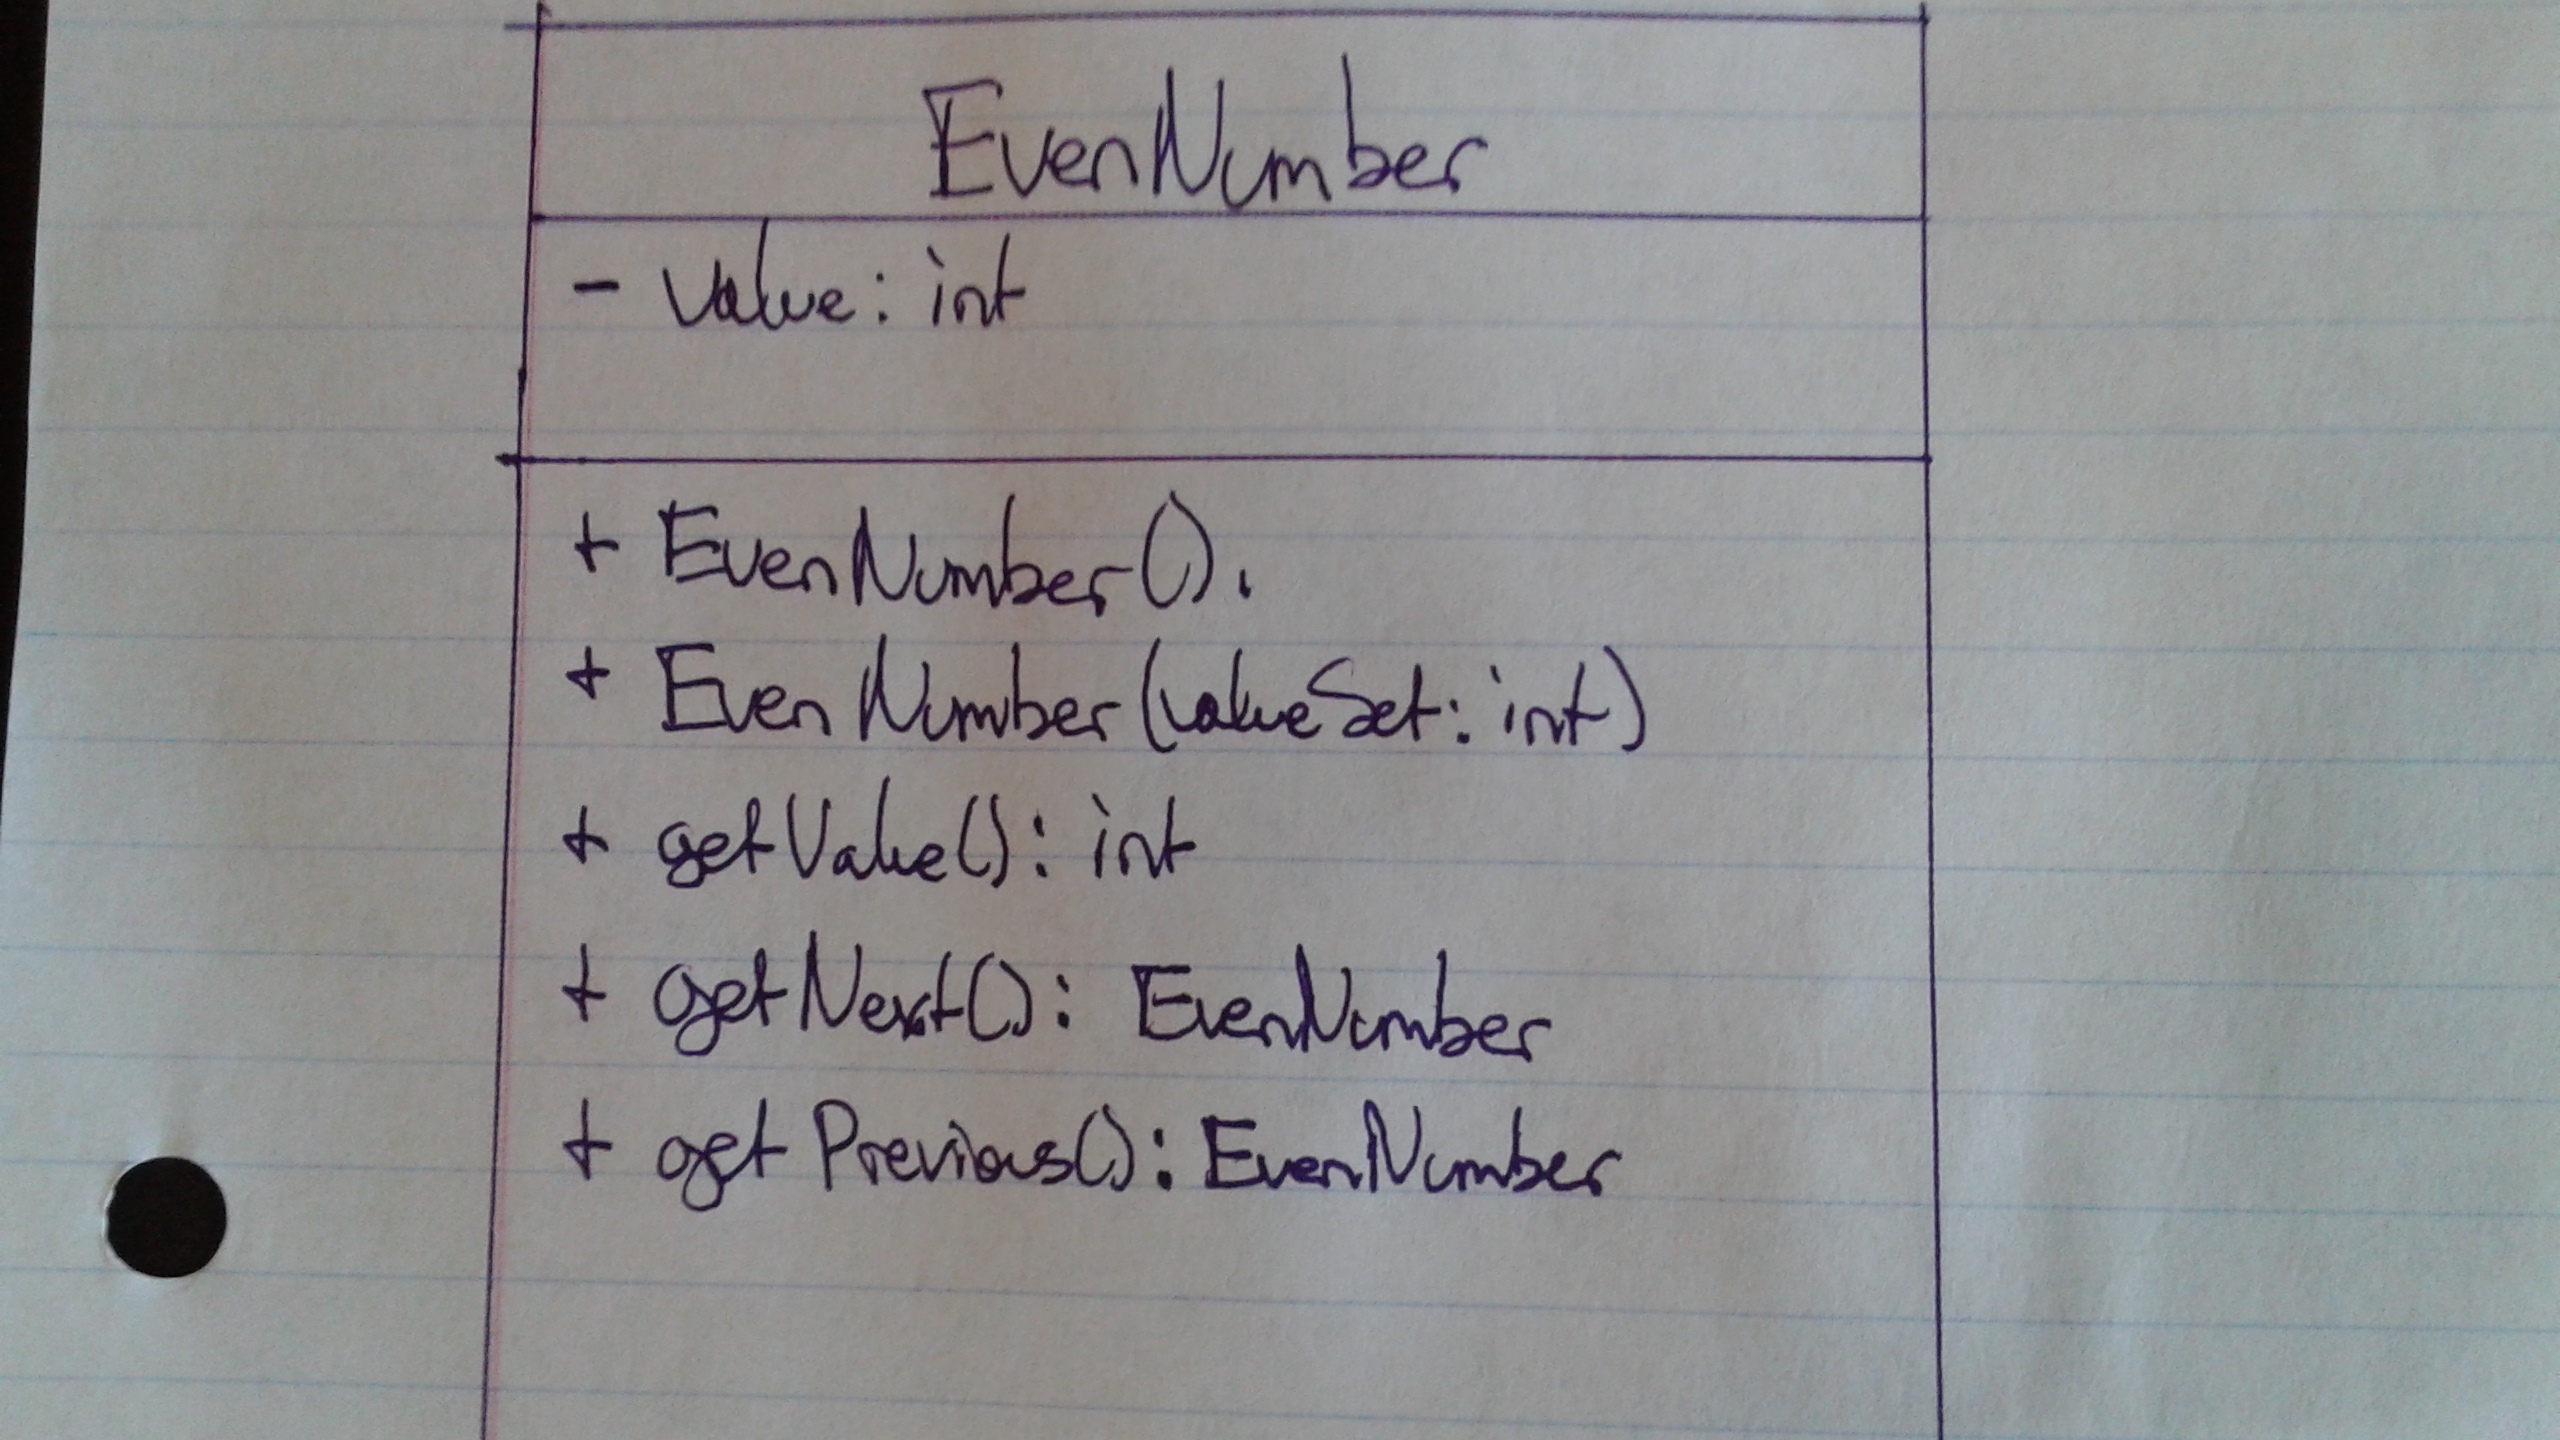 EvenNumber
- value: int
+ EvenNumber().
+ EvenNumber(valueSet: int)
+ getValue(): int
+ getNext(): EvenNumber
+ getPrevious(): EvenNumber